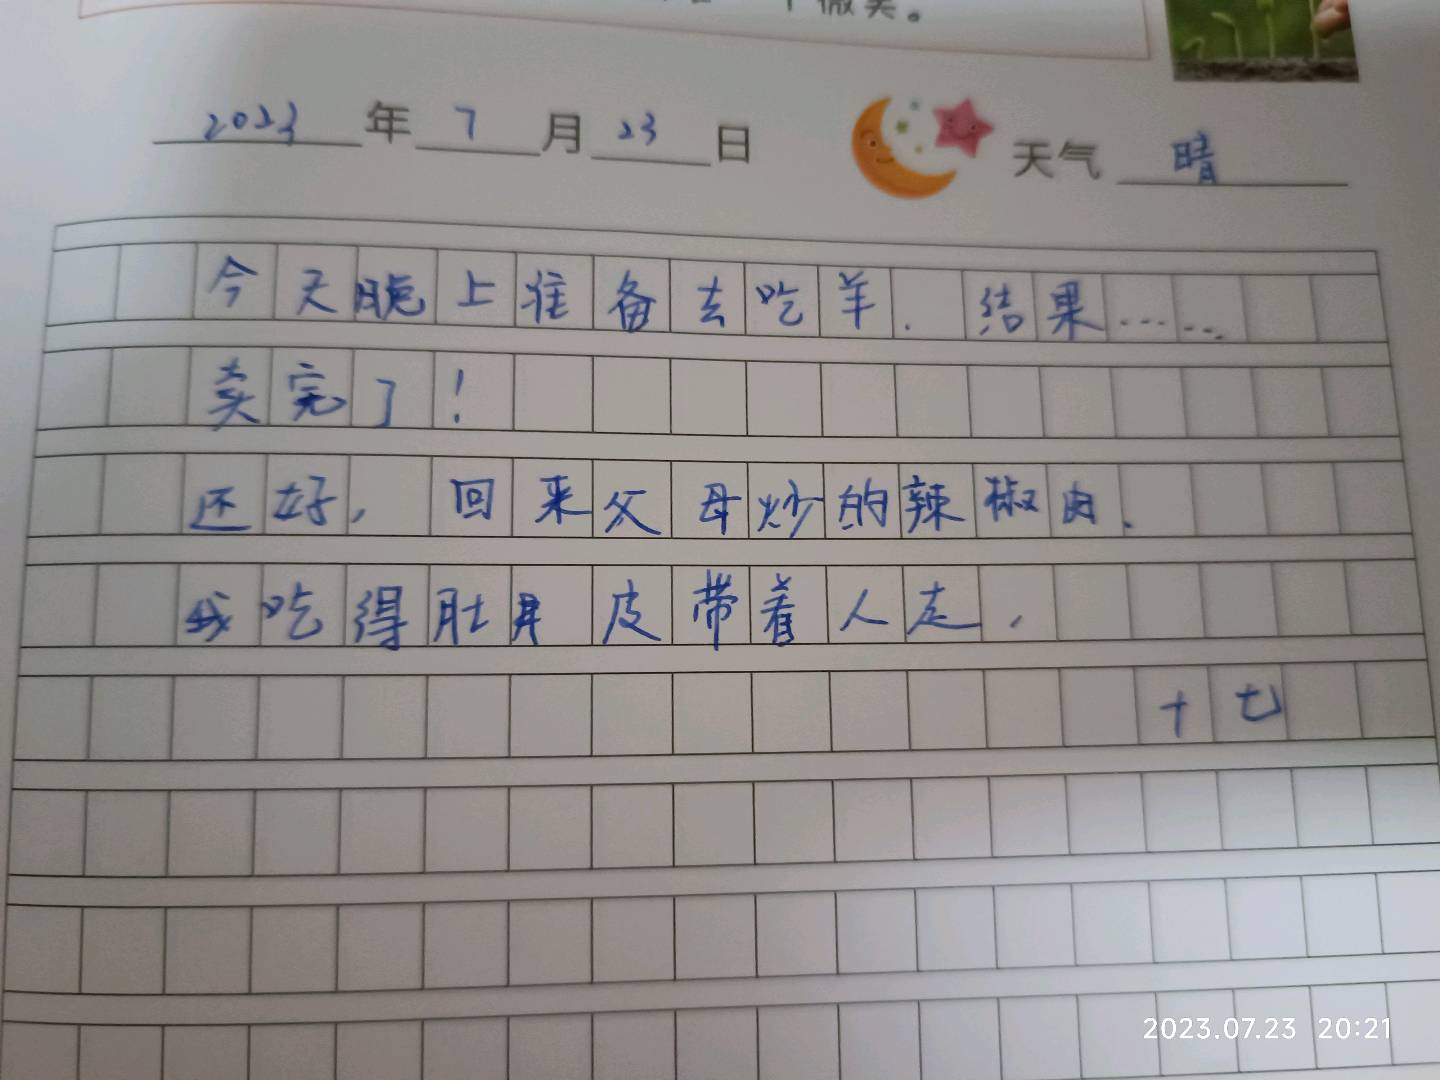 个微笑。
2023年7月23日 天气 晴
今天晚上准备去吃羊.结果……
卖完了!
还好, 回来父母炒的辣椒肉.
我吃得肚 皮带着人走,
十七
2023.07.23 20:21